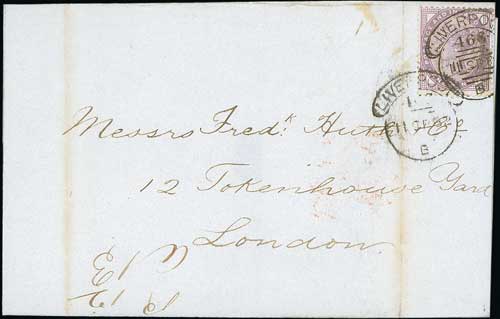 LIVERPOOL
466
B
LIVERPOOL
11 SP 82
B
Messrs Fredk Huth & Co
12 Tokenhouse Yard
London